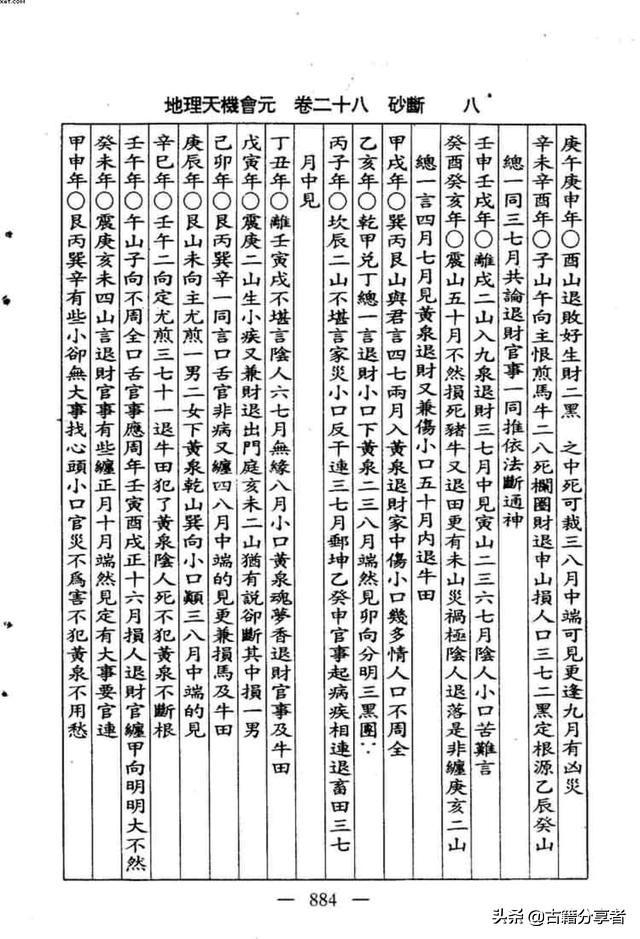 xet.com
地理天機會元　卷二十八　砂斷　八
庚午庚申年○酉山退敗好生財二黑　之中死可裁三八月中端可見更逢九月有凶災
辛未辛酉年○子山午向主恨煎馬牛二八死欄圈財退申山損人口三七二黑定根源乙辰癸山
總一同三七月共論退財官事一同推依法斷通神
壬申壬戌年○離戌二山入九泉退財三七月中見寅山二三六七月陰人小口苦難言
癸酉癸亥年○震山五十月不然損死豬牛又退田更有未山災禍極陰人退落是非纏庚亥二山
總一言四月七月見黃泉退財又兼傷小口五十月內退牛田
甲戌年○巽丙艮山與君言四七兩月入黃泉退財家中傷小口幾多情人口不周全
乙亥年○乾甲兌丁總一言退財小口下黃泉二三八月端然見卯向分明三黑圈∵
丙子年○坎辰二山不堪言家災小口反干連三七月郵坤乙癸申官事起病疾相連退畜田三七
月中見
丁丑年○離壬寅戌不堪言陰人六七月無緣八月小口黃泉魂夢香退財官事及牛田
戊寅年○震庚二山生小疾又兼財退出門庭亥未二山猶有說卻斷其中損一男
己卯年○艮丙巽辛一同言口舌官非病又纏四八月中端的見更兼損馬及牛田
庚辰年○艮山未向主尤煎一男二女下黃泉乾山巽向小口顛三八月中端的見
辛巳年○壬午二向定尤煎三七十一退牛田犯了黃泉陰人死不犯黃泉不斷根
壬午年○午山子向不周全口舌官事應周年壬寅酉戌正十六月損人退財官纏甲向明明大不然
癸未年○震庚亥未四山言退財官事有些纏正月十月端然見定有大事要官連
甲申年○艮丙巽辛有些小卻無大事找心頭小口官災不為害不犯黃泉不用愁
— 884 —
头条 @古籍分享者